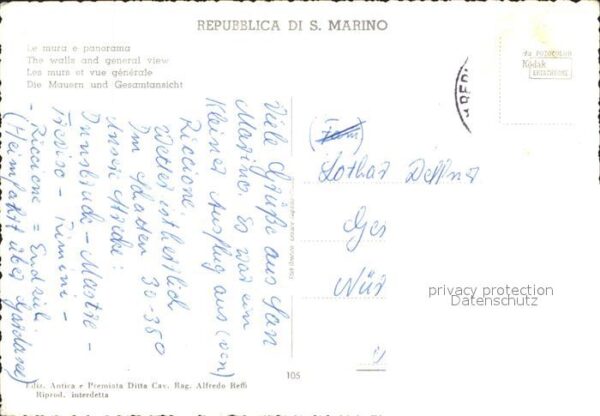 REPUBBLICA DI S. MARINO
Le mura e panorama
The walls and general view
Les murs et vue générale
Die Mauern und Gesamtansicht
da FOTOCOLOR
Kodak
EKTACHROME
Viele Grüße aus San
Marino. Es war ein
kleiner Ausflug aus (von)
Riccione.
Wetter ist herrlich
Im Schatten 30-35°
Unsere Strecke:
Innsbruck - Mestre -
Treviso - Rimini -
- Riccione = Endziel
(Heimfahrt über Gardasee)
(Fam)
Lothar
Ges
Nür
privacy protection
Datenschutz
105
Ediz. Antica e Premiata Ditta Cav. Rag. Alfredo Reffi
Riprod. interdetta